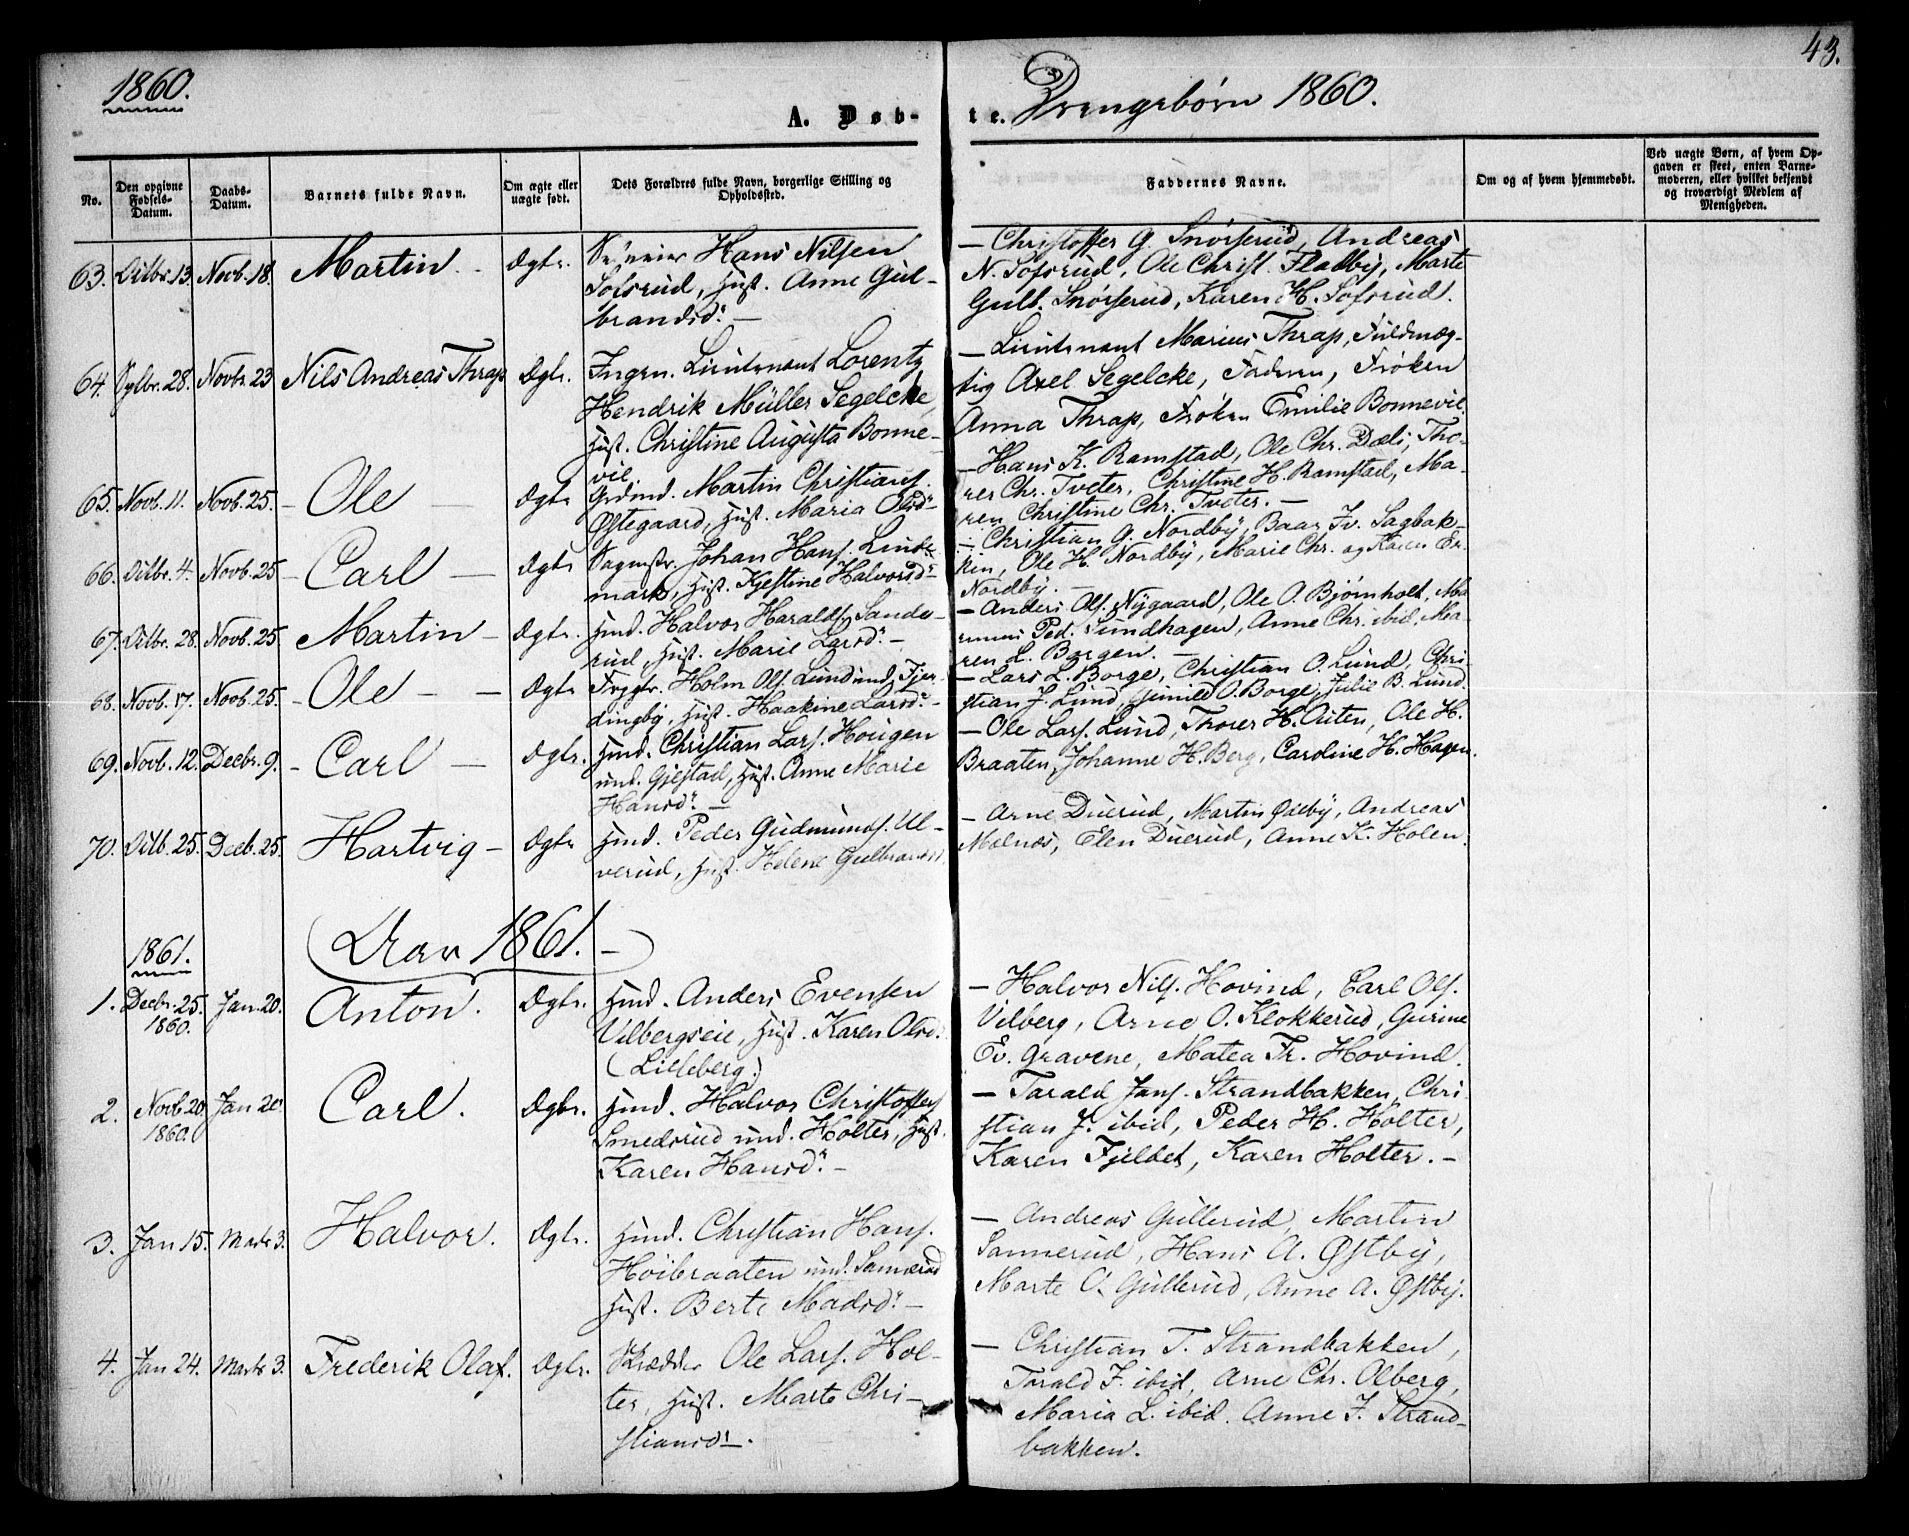 1860.
43.
A. Døb-
te. Drengebørn 1860.
No.
Den opgivne Fødsels-Datum.
Daabs-Datum.
Barnets fulde Navn.
Om ægte eller uægte født.
Dets Forældres fulde Navn, borgerlige Stilling og Opholdssted.
Faddernes Navne.
Om og af hvem hjemmedøbt.
Ved uægte Børn, af hvem Opgaven er skeet, enten Barnemoderen, eller hvilket bekjendt og troværdigt Medlem af Menigheden.
63. Octbr. 13. Novb. 18. Martin. - Ægte.
Hans Nilsen
Sofsrud, Hust. Anne Gul-
brandsd. —
— Christoffer G. Snørserud, Andreas
N. Sofsrud, Ole Christ. Fladby, Marte
Gulb. Snørserud, Karen H. Sofsrud.
64. Sptbr. 28. Novbr. 23 Nils Andreas Thrap Ægte.
Ingen. Lieutenant Lorentz
Hendrik Müller Segelcke,
Hust. Christine Augusta Bonne-
vie
— Lieutenant Marius Thrap, Fuldmæg-
tig Axel Segelcke, Faderen, Frøken
Anna Thrap, Frøken Emilie Bonnevie
65. Novb. 11. Novb. 25. - Ole — Ægte
Grdmd. Martin Christians.
Østegaard, Hust. Maria Olsd.
— Hans K. Ramstad, Ole Chr. Dæli, Tho-
rer Chr. Tveter, Christine H. Ramstad, Ma-
ren Christine Chr. Tveter. —
66. Octbr. 4. Novb. 25 - Carl — Ægte
Sagmstr. Johan Hans. Linde-
mark, Hust. Kjestine Halvorsd. -
— Christian G. Nordby, Baar Iv. Sagbak-
ken, Ole H. Nordby, Marie Chr. og Karen Er.
Nordby. —
67. Octbr. 28. Novb. 25 Martin — Ægte.
Hmd. Halvor Haralds. Sande-
rud, Hust. Marie Larsd. -
— Anders Ols. Nygaard, Ole O. Bjørnholt,
Ped. Sundhagen, Anne Chr. ibid, Ma-
ren L. Borgen. —
68. Novb. 17. Novb. 25. - Ole - — Ægte
Holm Ols. Lund und. Fjer-
dingby, Hust. Haakine Larsd. -
— Lars L. Borge, Christian O. Lund, Chri-
stian J. Lund, Gunild O. Borge, Julie B. Lund.
69. Novb. 12. Decbr. 9. - Carl — Ægte.
Hmd. Christian Lars. Hougen
und. Gjestad, Hust. Anne Marie
Hansd. —
— Ole Lars. Lund, Thorer H. Auten, Ole H.
Braaten, Johanne H. Berg, Caroline H. Hagen
70. Octb. 25. Decb. 25. Hartvig — Ægte
Hmd. Peder Gudmunds. Ul-
verud, Hust. Helene Gulbrandsd.
— Arne Duerud, Martin Dæleby, Andreas
Molnæs, Elen Duerud, Anne K. Holen.
1861.
Aar 1861. —
1. Decbr. 25. 1860. Jan. 20. Anton. Ægte.
Hmd. Anders Evensen
Vilbergseie, Hust. Karen Olsd.
(Lilleberg.)
— Halvor Nils. Hovind, Carl Ols.
Vilberg, Arne O. Klokkerud, Gurine
Ev. Gravene, Matea Fr. Hovind.
2. Novb. 20 1860. Jan 20. Carl. Ægte.
Hmd. Halvor Christoffers.
Smedsrud und. Holter, Hust.
Karen Hansd. —
— Tarald Jans. Strandbakken, Chri-
stian J. ibid, Peder H. Holter,
Karen Fjeldet, Karen Holter. —
3. Jan 15. Marts 3. Halvor. Ægte.
Hmd. Christian Hans.
Hoibraaten und. Sannerud
Hust. Berte Madsd. —
— Andreas Gullerud, Martin
Sannerud, Hans A. Østby,
Marte O. Gullerud, Anne A. Østby.
4. Jan 24. Marts 3. Frederik Olaf. Ægte.
Skrædder Ole Lars. Hol-
ter, Hust. Marte Chri-
stiansd. —
— Christian T. Strandbakken,
Tarald J. ibid, Arne Chr. Olberg,
Maria L. ibid. Anne J. Strand-
bakken.